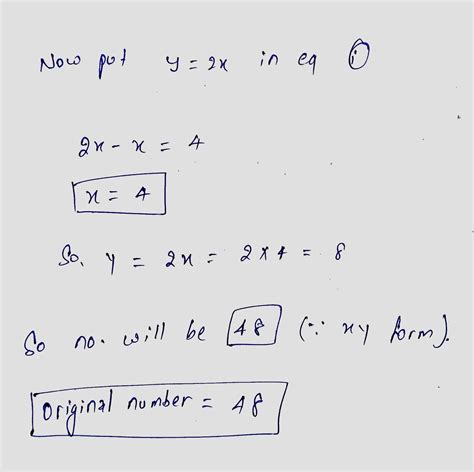 Now put y = 2x in eq (i)
2x - x = 4
x = 4
So, y = 2x = 2 x 4 = 8
So no. will be 48 (∵ xy form).
Original number = 48